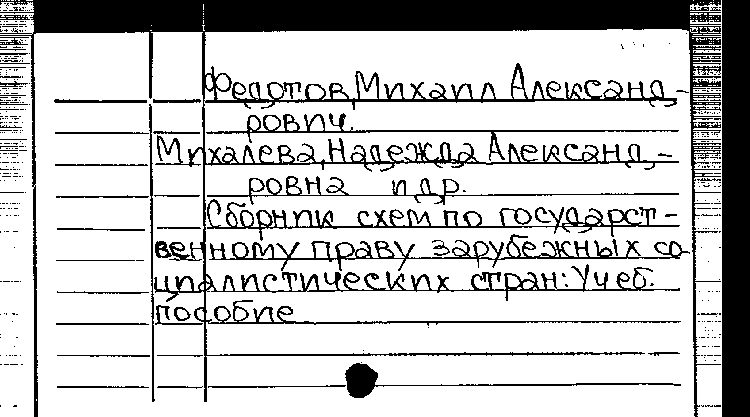 Федотов, Михаил Александ-
рович.
Михалева, Надежда Александ-
ровна и др.
Сборник схем по государст-
венному праву зарубежных со-
циалистических стран: Учеб.
пособие